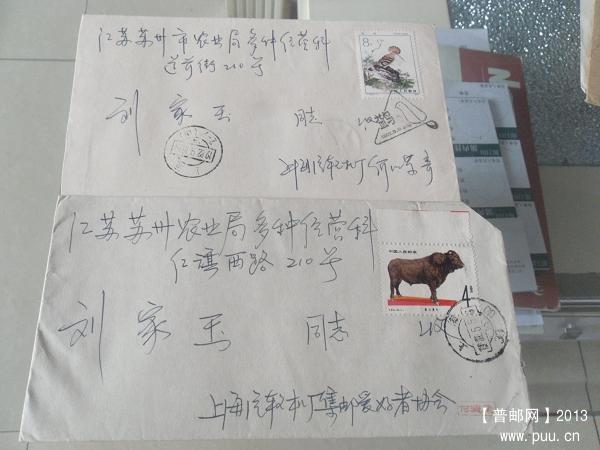 江苏苏州市农业局多种经营科
道前街210号
8分
刘家玉 同志 收
上海汽轮机厂何
江苏苏州农业局多种经营科
红旗西路210号
中国人民邮政
4
刘家玉 同志 收
上海汽轮机厂集邮爱好者协会
【普邮网】2013
www.puu.cn